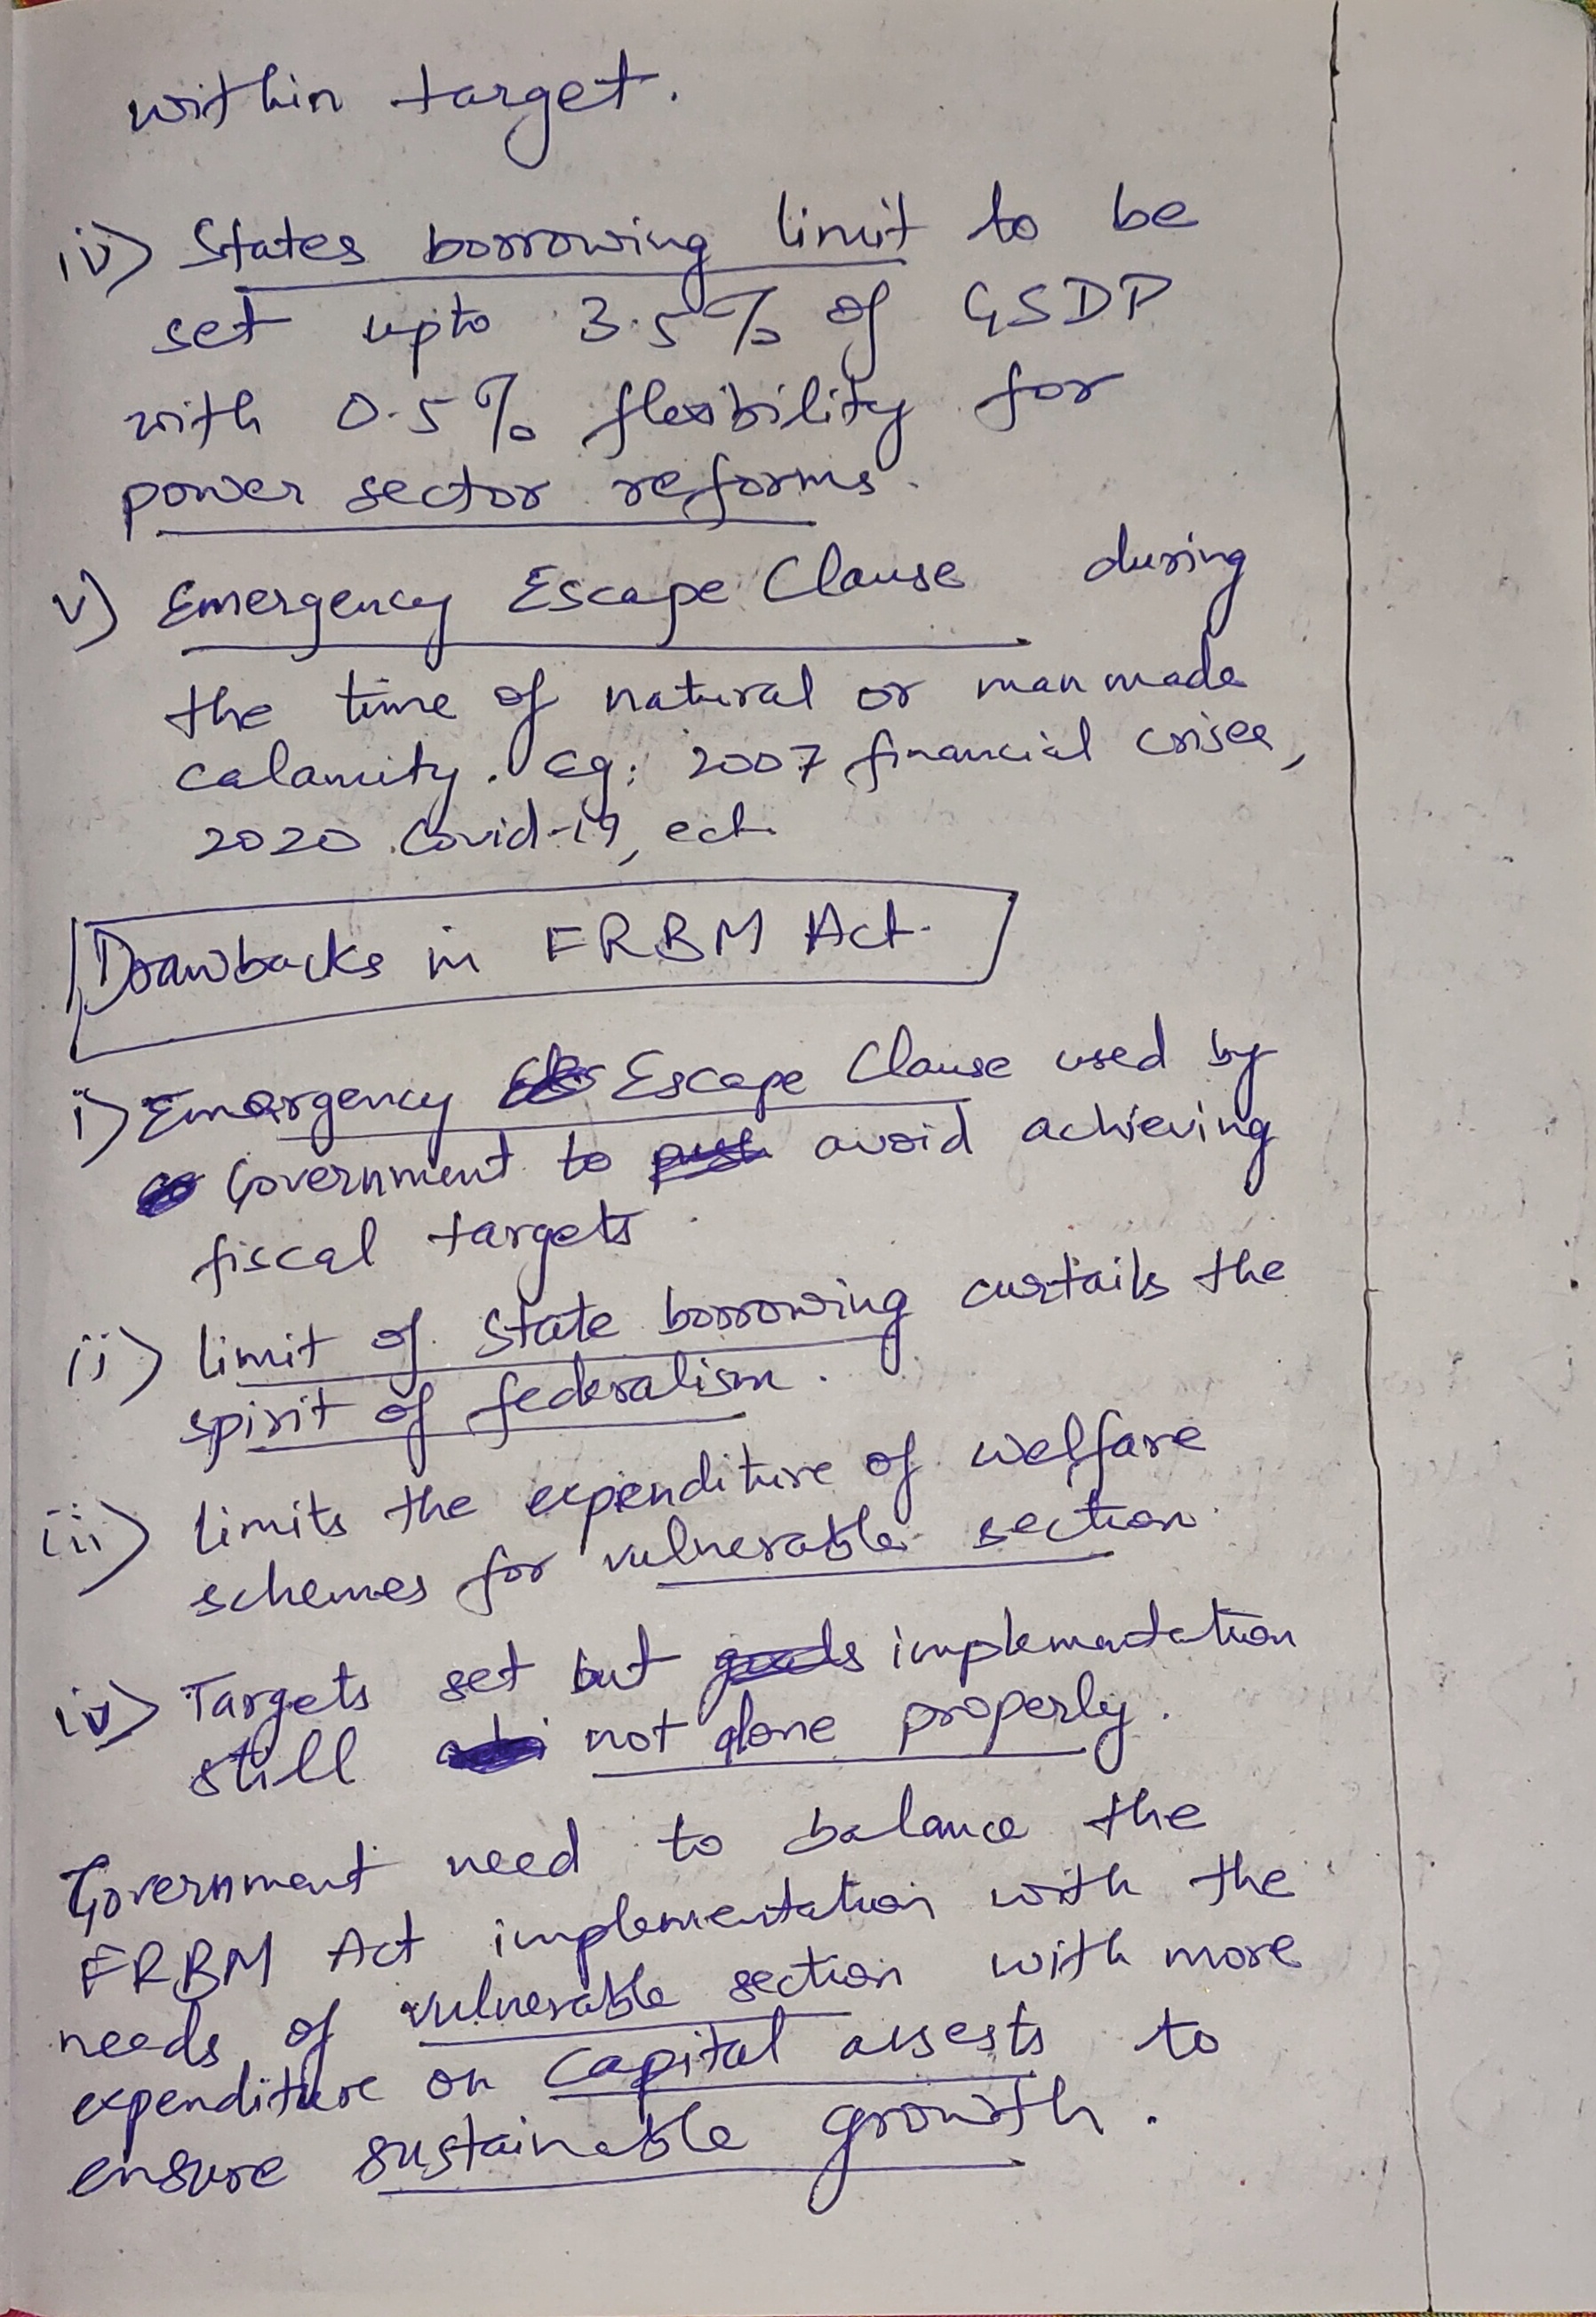 within target.
iv) States borrowing limit to be
set upto 3.5% of GSDP
with 0.5% flexibility for
power sector reforms.
v) Emergency Escape Clause during
the time of natural or manmade
calamity. Eg: 2007 financial crises,
2020 Covid-19, ect.
Drawbacks in FRBM Act.
i) Emergency Escape Clause used by
Government to avoid achieving
fiscal targets.
ii) limit of State borrowing curtails the
spirit of federalism.
iii) limits the expenditure of welfare
schemes for vulnerable section.
iv) Targets set but implementation
still not done properly.
Government need to balance the
FRBM Act implementation with the
needs of vulnerable section with more
expenditure on capital assests to
ensure sustainable growth.